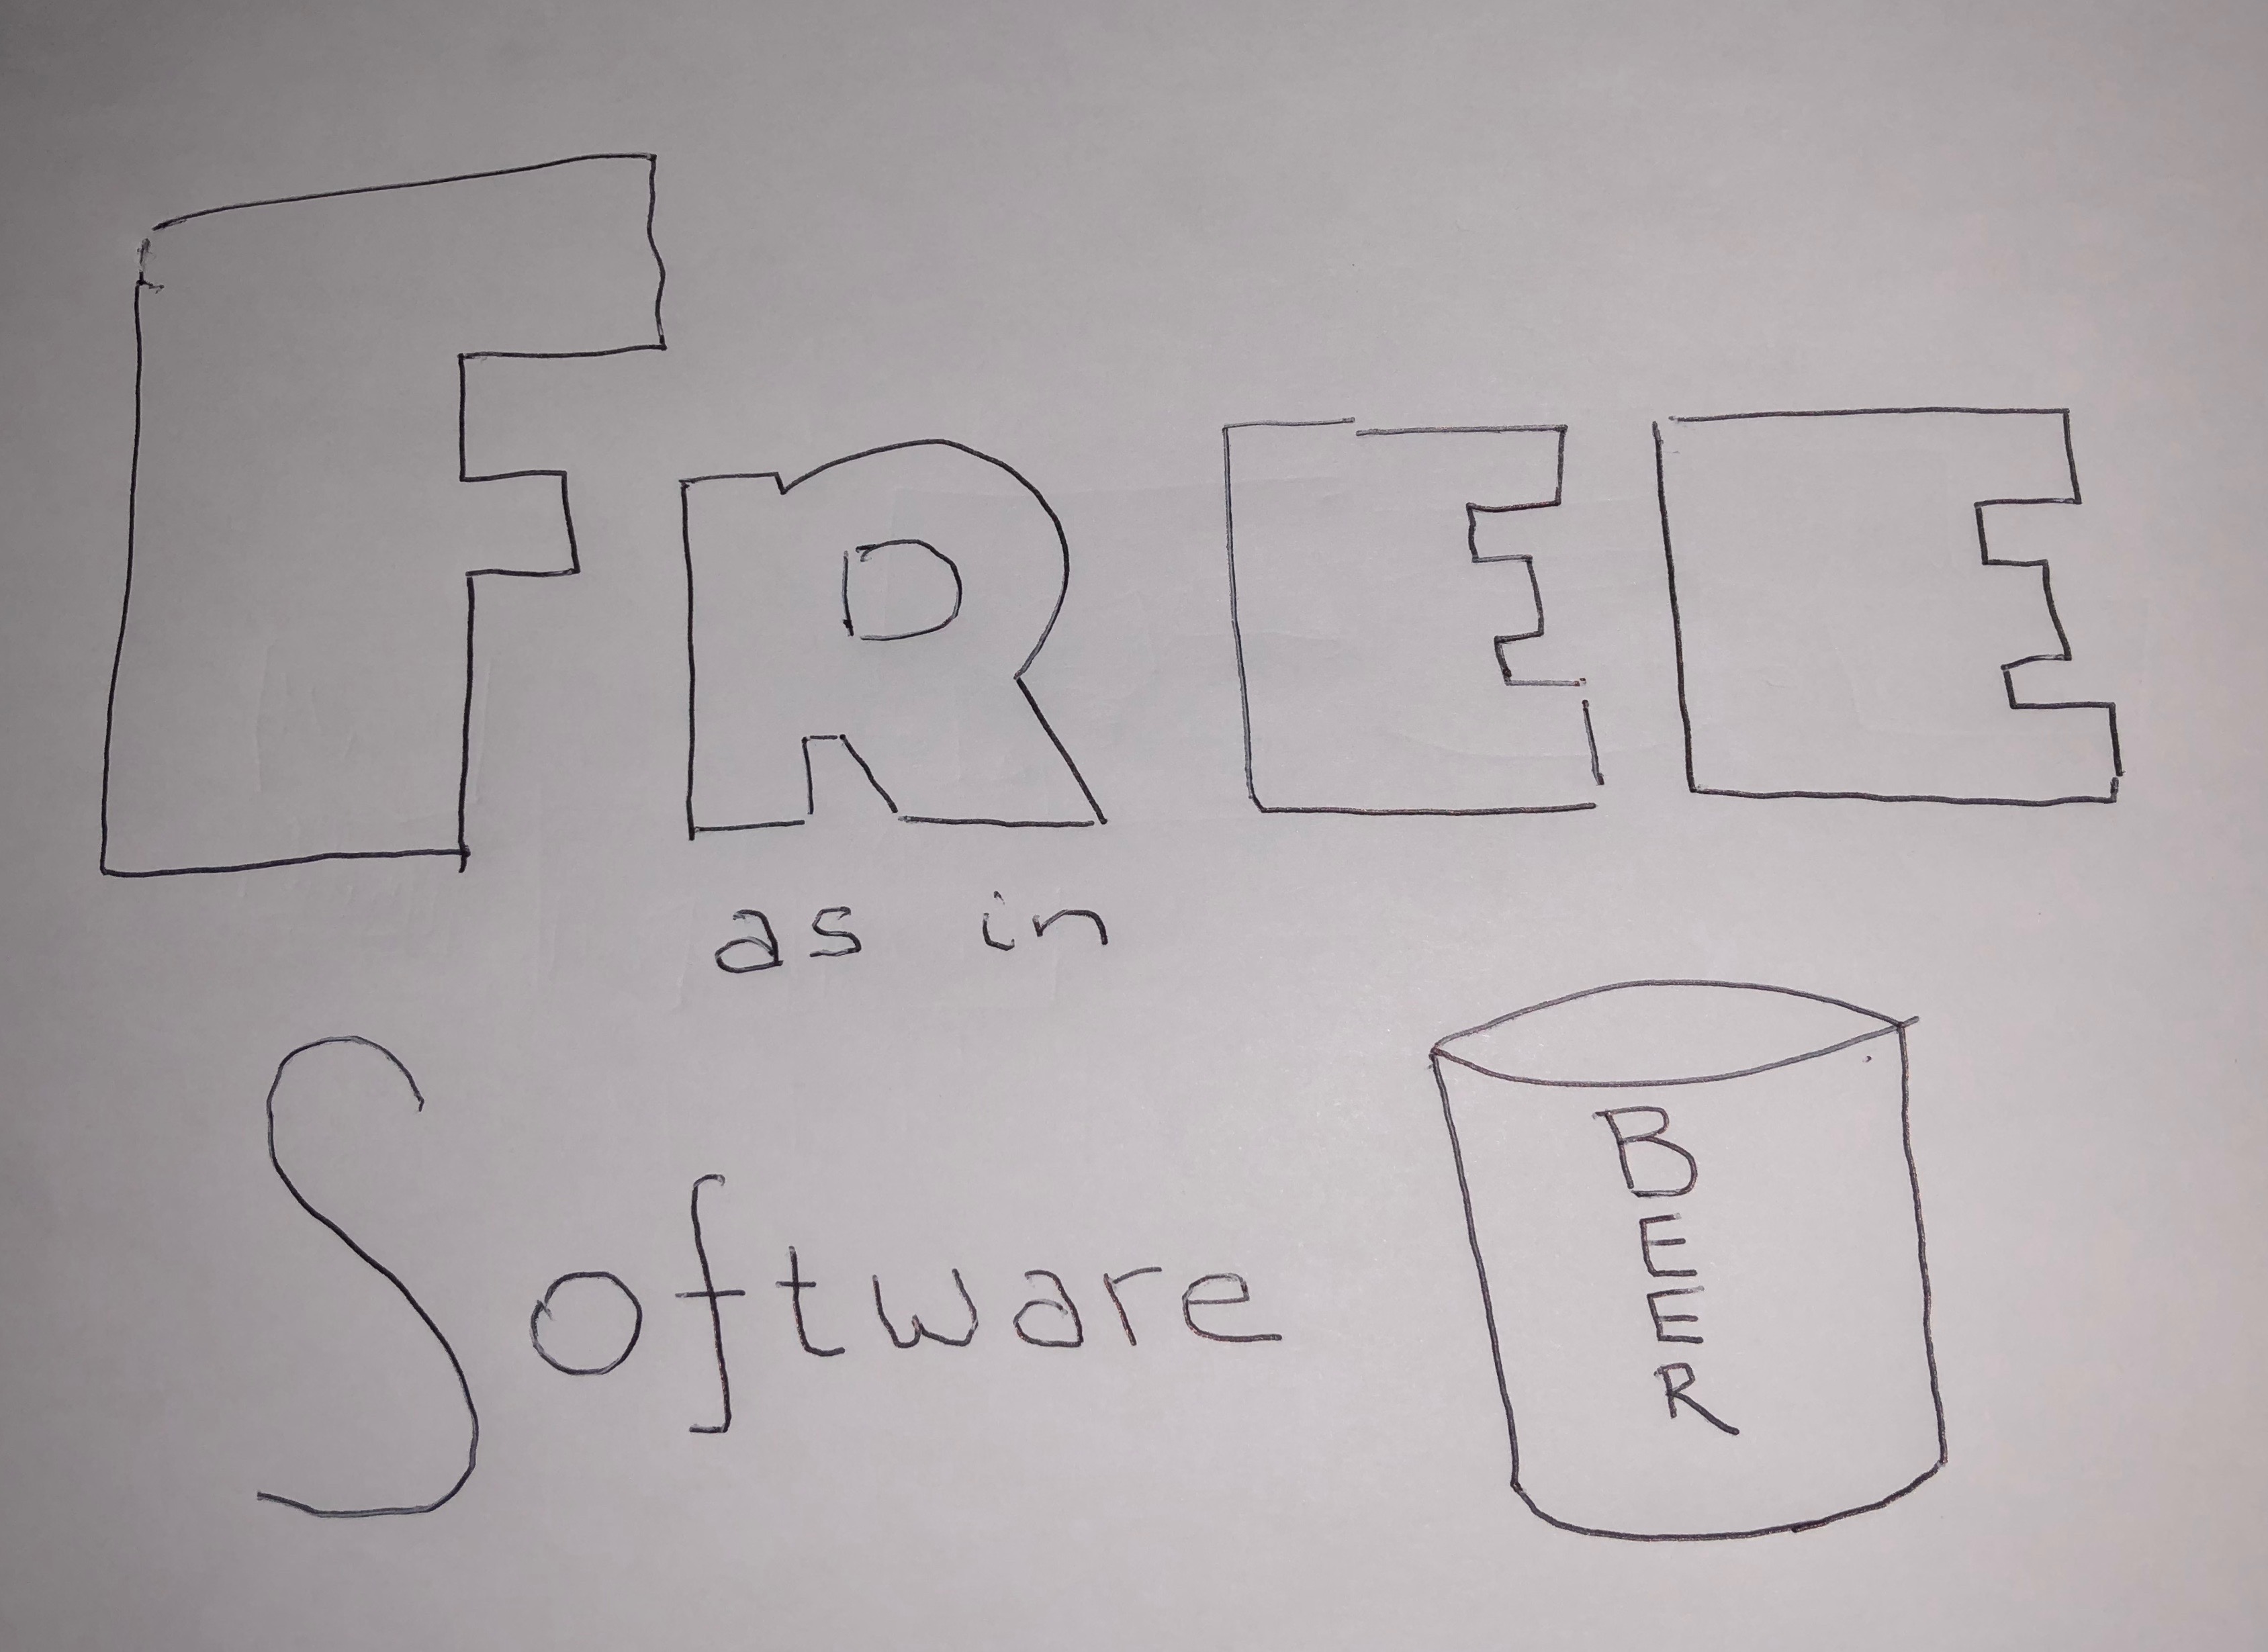 FREE
as in
Software
BEER